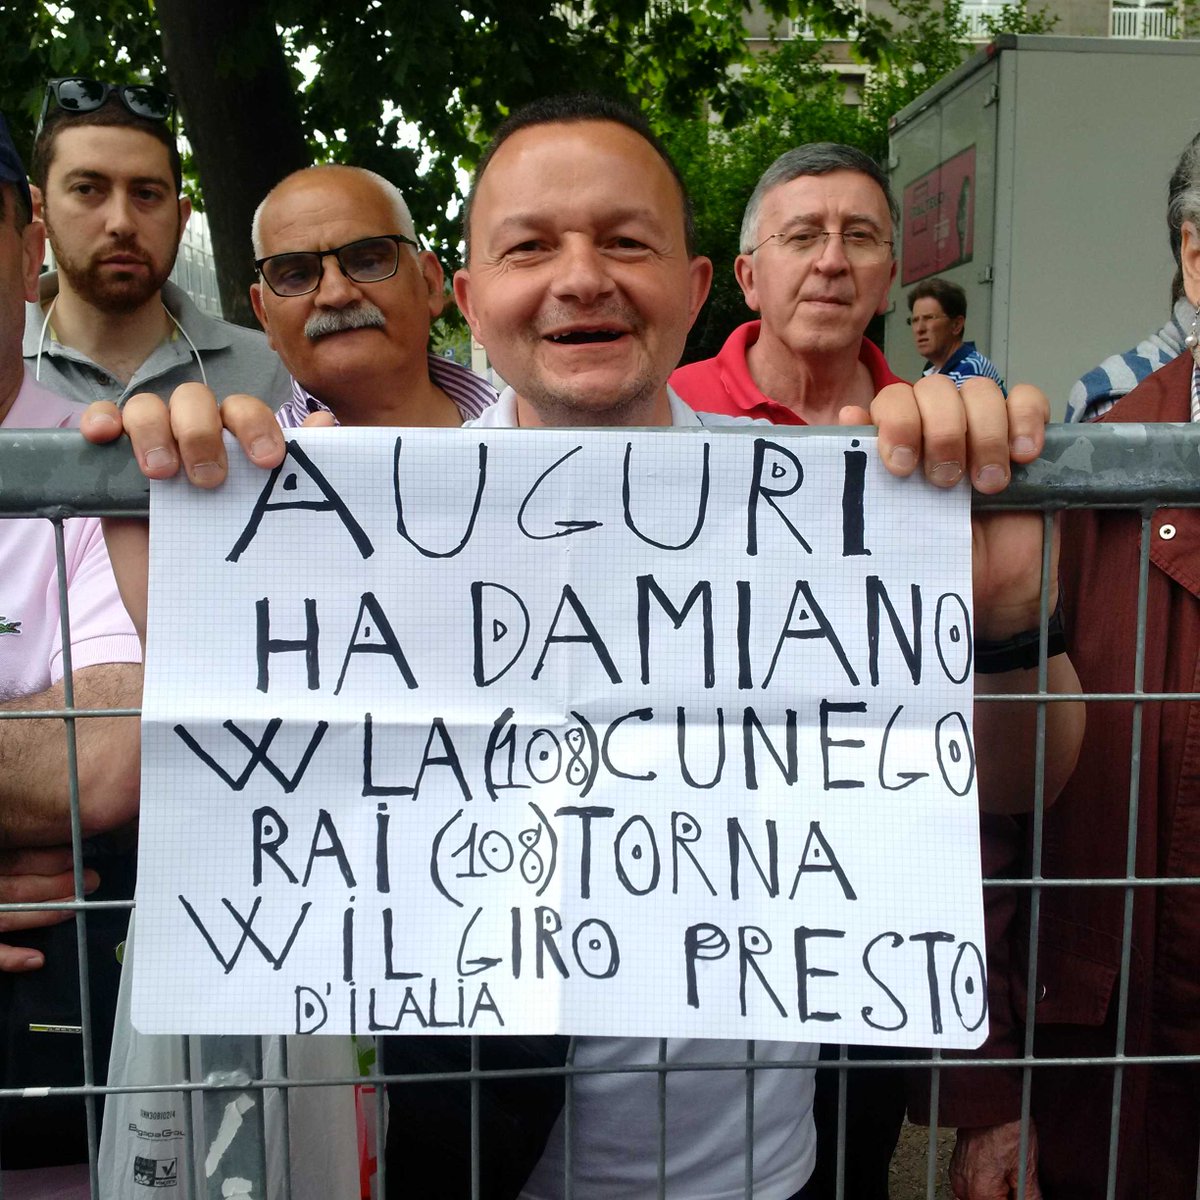 AUGURI
HA DAMIANO
W LA (108) CUNEGO
RAI (108) TORNA
W IL GIRO PRESTO
D'ILALIA